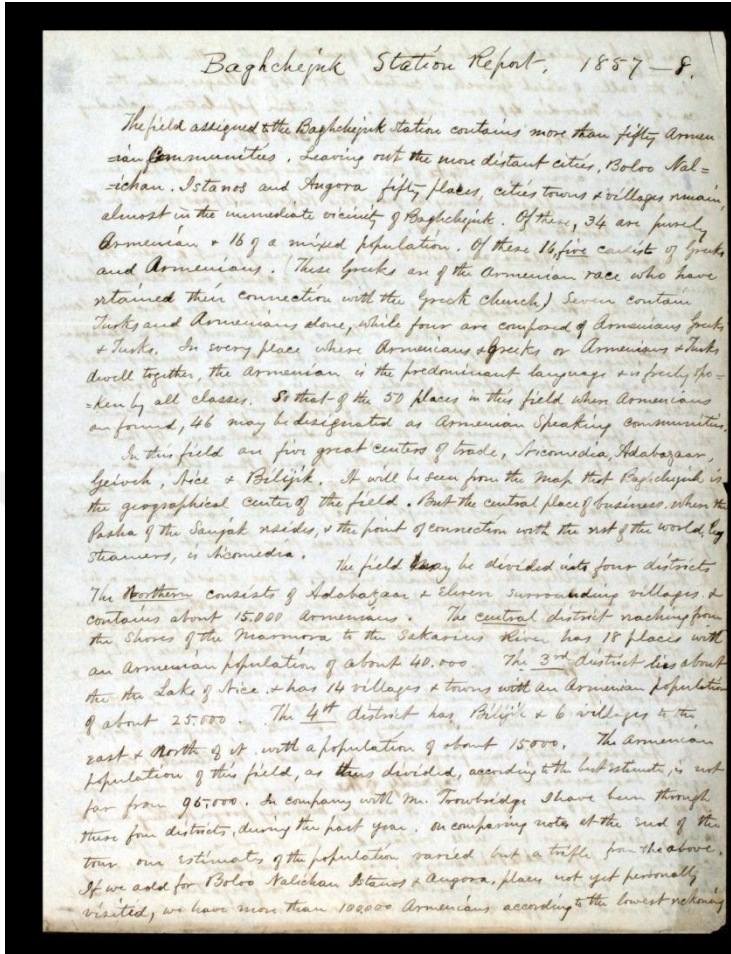 Baghchejuk Station Report, 1857-8.
The field assigned to the Baghchejuk station contains more than fifty Armen-
=ian Communities. Leaving out the more distant cities, Boloo Nal=
=ichan. Istanos and Angora fifty places, cities towns & villages remain,
almost in the immediate vicinity of Baghchejuk. Of these, 34 are purely
Armenian & 16 of a mixed population. Of these 16, five consist of Greeks
and Armenians. (These Greeks are of the Armenian race who have
retained their connection with the Greek church) Seven contain
Turks and Armenians alone, while four are composed of Armenians Greeks
& Turks. In every place where Armenians & Greeks or Armenians & Turks
dwell together, the Armenian is the predominant language & is freely spo-
=ken by all classes. So that of the 50 places in this field where Armenians
are found, 46 may be designated as Armenian Speaking communities.
In this field are five great centers of trade, Nicomedia, Adabazaar,
Geiveh, Nice & Bilijik. It will be seen from the map that Baghchejuk is
the geographical center of the field. But the central place of business, where the
Pasha of the Sanjak resides, & the point of connection with the rest of the world, by
steamers, is Nicomedia. The field may be divided into four districts
The Northern consists of Adabazaar & Eleven surrounding villages &
contains about 15.000 Armenians. The central district reaching from
the shores of the Marmora to the Sakarius River has 18 places with
an Armenian population of about 40.000 The 3rd district lies about
the the Lake of Nice. & has 14 villages & towns with an Armenian population
of about 25.000. The 4th district has Bilijik & 6 villages to the
east & North of it with a population of about 15000. The Armenian
population of this field, as thus divided, according to the best estimate, is not
far from 95.000. In company with Mr. Trowbridge I have been through
these four districts, during the past year. On comparing notes at the end of the
tour our estimates of the population varied but a trifle from the above.
If we add for Boloo Nalichan Istanos & Angora, places not yet personally
visited, we have more than 100,000 Armenians according to the lowest reckoning